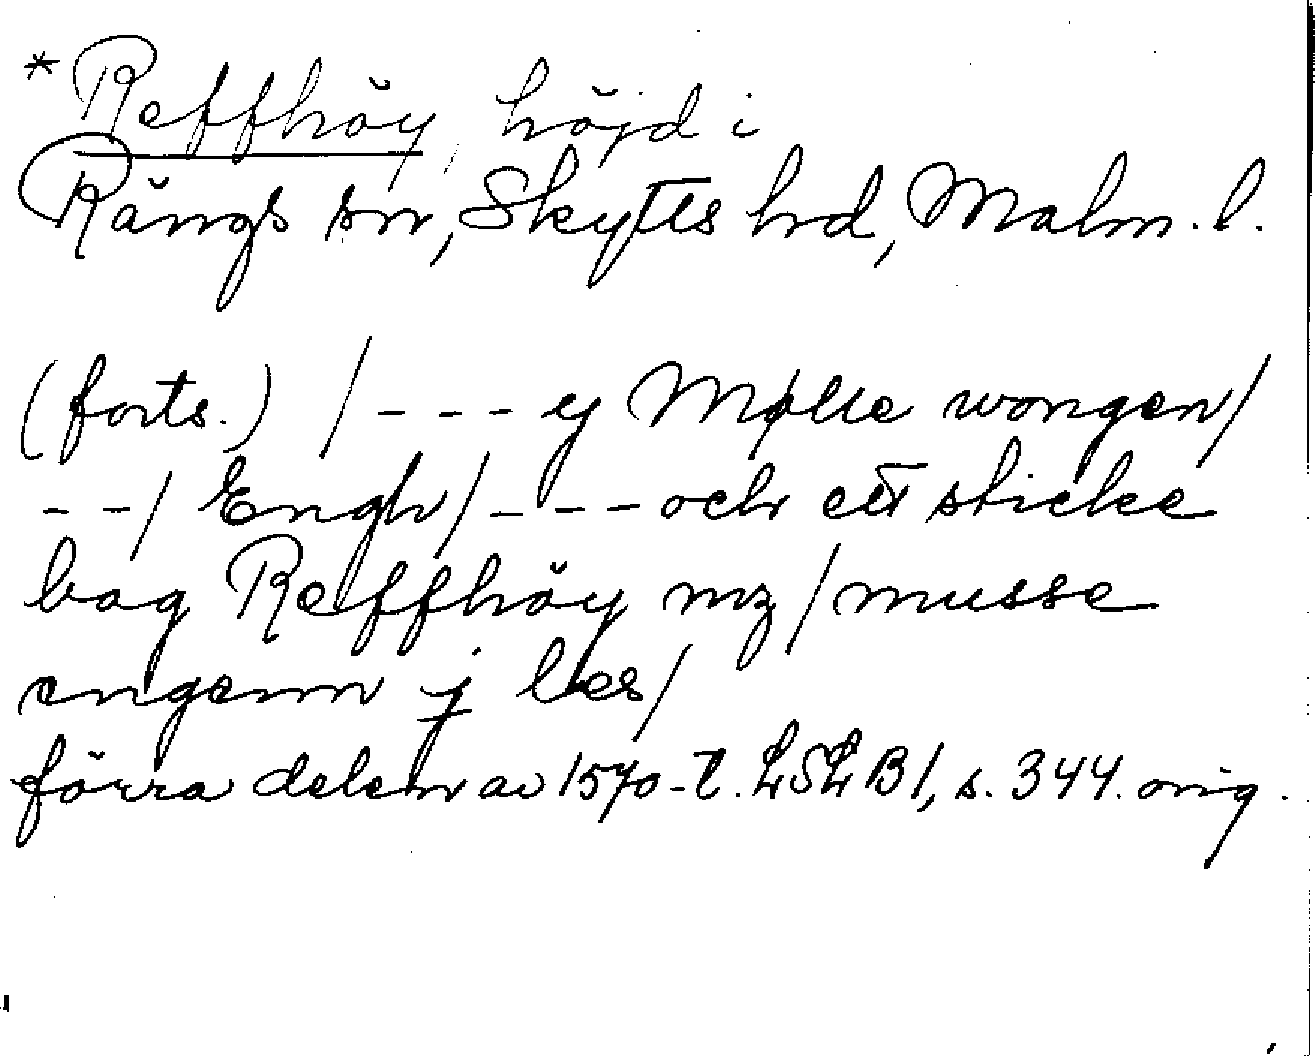 *Reffhöy, höjd i
Rängs sn, Skytts hd, Malm. l.
(forts.) /- - - ij Mølle wongen/
- -/ Engh/- - - och ett sticke
bag Reffhöy mz/musse
engenn j les/
förra delen av 1570-t. LSLB1, s. 344. orig.